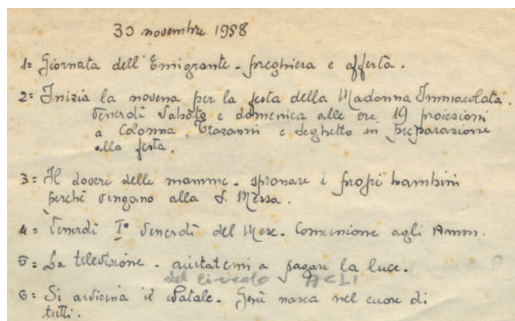 30 novembre 1958
1= Giornata dell'Emigrante - preghiera e offerta.
2= Inizia la novena per la festa della Madonna Immacolata.
Venerdì Sabato e domenica alle ore 19 proiezioni
a Colonna, e in preparazione
alla festa.
3= Il dovere delle mamme - spronare i propri bambini
perchè vengano alla S. Messa.
4= Venerdì I° Venerdì del Mese. Comunione agli Amm.
5= La televisione - aiutatemi a pagare la luce.
del circolo ACLI
6= Si avvicina il Natale. Gesù nasca nel cuore di
tutti.